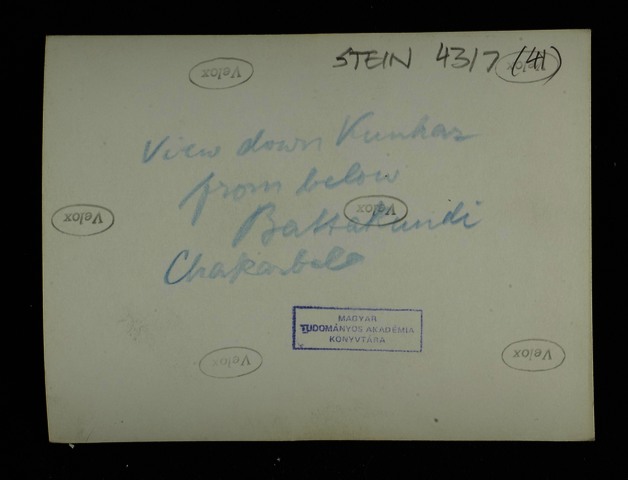 STEIN 43/7 (41)
Velox
Velox
View down Kunhar
from below
Velox
Velox
Battakundi
MAGYAR
TUDOMÁNYOS AKADÉMIA
KÖNYVTÁRA
Velox
Velox